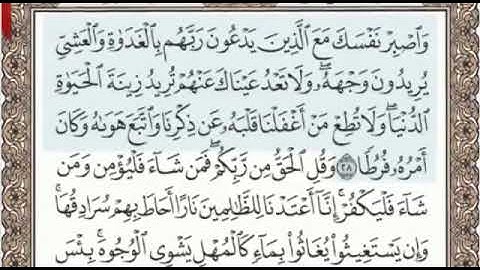 وَٱصۡبِرۡ نَفۡسَكَ مَعَ ٱلَّذِينَ يَدۡعُونَ رَبَّهُم بِٱلۡغَدَوٰةِ وَٱلۡعَشِيِّ
يُرِيدُونَ وَجۡهَهُۥۖ وَلَا تَعۡدُ عَيۡنَاكَ عَنۡهُمۡ تُرِيدُ زِينَةَ ٱلۡحَيَوٰةِ
ٱلدُّنۡيَاۖ وَلَا تُطِعۡ مَنۡ أَغۡفَلۡنَا قَلۡبَهُۥ عَن ذِكۡرِنَا وَٱتَّبَعَ هَوَىٰهُ وَكَانَ
أَمۡرُهُۥ فُرُطٗا ٢٨ وَقُلِ ٱلۡحَقُّ مِن رَّبِّكُمۡۖ فَمَن شَآءَ فَلۡيُؤۡمِن وَمَن
شَآءَ فَلۡيَكۡفُرۡۚ إِنَّآ أَعۡتَدۡنَا لِلظَّٰلِمِينَ نَارًا أَحَاطَ بِهِمۡ سُرَادِقُهَاۚ
وَإِن يَسۡتَغِيثُواْ يُغَاثُواْ بِمَآءٖ كَٱلۡمُهۡلِ يَشۡوِي ٱلۡوُجُوهَۚ بِئۡسَ